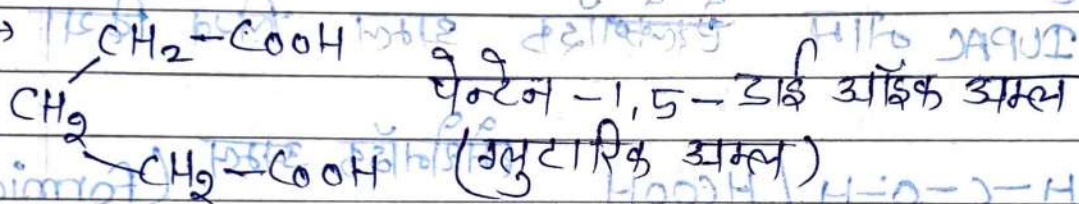 → CH₂-COOH
CH₂ पेन्टेन -1,5- डाई ऑइक अम्ल
CH₂-COOH (ग्लुटारिक अम्ल)